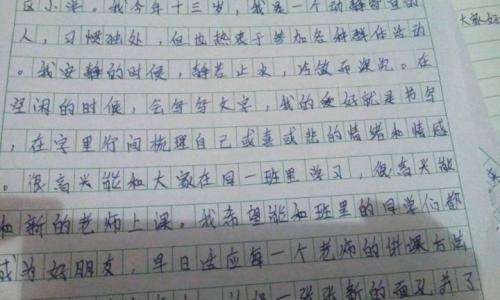 区小学。我今年十三岁，我是一个动静皆宜的
人，习惯独处，但也热衷于参加各种集体活动
。我安静的时候，静若止水，内敛而深沉。在
空闲的时候，会写写文字，我的爱好就是书写
，在字里行间梳理自己或喜或悲的情绪和情感
。很高兴能和大家在同一班里学习，很高兴能
和新的老师上课。我希望能和班里的同学们都
成为好朋友，早日适应每一个老师的讲课方法
一张张新的面孔
大家好